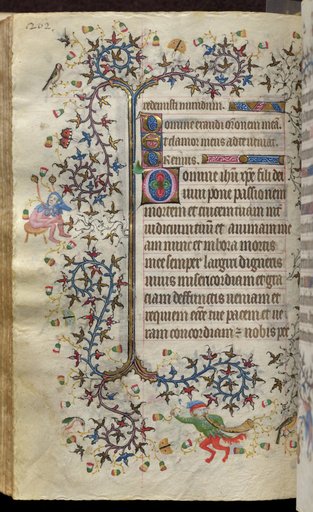 1202
redemisti mundum.
Domine exaudi orōnem meā.
Et clamor meus ad te veniat.
Oremus.
Domine ihū xp̄e fili dei
vivi pone passionem
mortem et crucem tuam int
iudicium tuū et animam me
am nunc et in hora mortis
mee semper largiri digneris
vivis misericordiam et gra
ciam deffunctis veniam et
requiem eccīe tue pacem et ve
ram concordiam & nobis pec